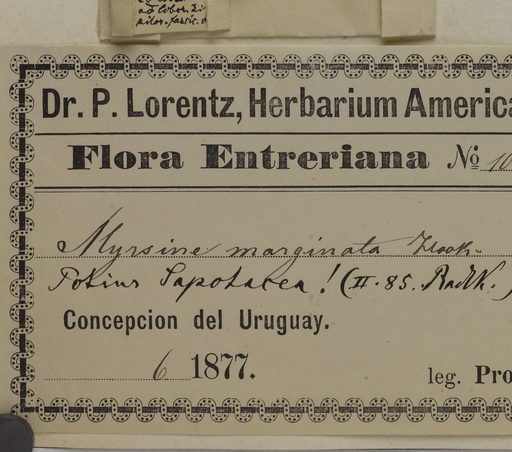 Dr. P. Lorentz, Herbarium America
Flora Entreriana № 10
Myrsine marginata Hook.
Potius Sapotacea! (II. 85. Radlk.)
Concepcion del Uruguay.
6 1877.
leg. Pro